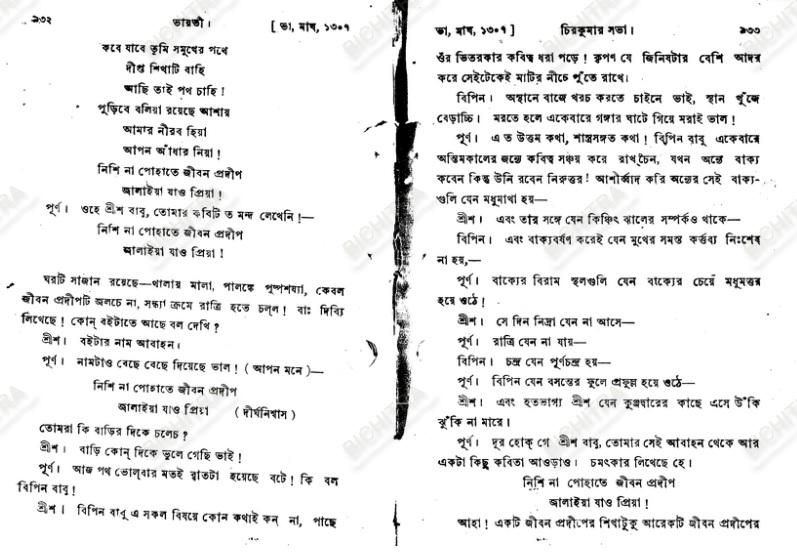 ৯৩২ ভারতী। [ ভা, মাঘ, ১৩০৭
কবে যাবে তুমি সমুখের পথে
দীপ্ত শিখাটি বাহি
আছি তাই পথ চাহি !
পুড়িবে বলিয়া রয়েছে আশায়
আমার নীরব হিয়া
আপন আঁধার নিয়া !
নিশি না পোহাতে জীবন প্রদীপ
জালাইয়া যাও প্রিয়া !
পূর্ণ। ওহে শ্রীশ বাবু, তোমার কবিটি ত মন্দ লেখেনি !—
নিশি না পোহাতে জীবন প্রদীপ
জালাইয়া যাও প্রিয়া !
ঘরটি সাজান রয়েছে—থালায় মালা, পালঙ্কে পুষ্পশয্যা, কেবল
জীবন প্রদীপটি জলচে না, সন্ধ্যা ক্রমে রাত্রি হতে চল্‌ল ! বাঃ দিব্যি
লিখেছে ! কোন্ বইটাতে আছে বল দেখি ?
শ্রীশ। বইটার নাম আবাহন।
পূর্ণ। নামটাও বেছে বেছে দিয়েছে ভাল ! ( আপন মনে )—
নিশি না পোহাতে জীবন প্রদীপ
জালাইয়া যাও প্রিয়া ! (দীর্ঘনিশ্বাস )
তোমরা কি বাড়ির দিকে চলেচ ?
শ্রীশ। বাড়ি কোন্ দিকে ভুলে গেছি ভাই !
পূর্ণ। আজ পথ ভোল্‌বার মতই রাতটা হয়েছে বটে ! কি বল
বিপিন বাবু !
শ্রীশ। বিপিন বাবু এ সকল বিষয়ে কোন কথাই কন্ না, পাছে
ভা, মাঘ, ১৩০৭ ] চিরকুমার সভা। ৯৩৩
ওঁর ভিতরকার কবিত্ব ধরা পড়ে ! কৃপণ যে জিনিষটার বেশি আদর
করে সেইটেকেই মাটির নীচে পুঁতে রাখে।
বিপিন। অস্থানে বাজে খরচ করতে চাইনে ভাই, স্থান খুঁজে
বেড়াচ্চি। মরতে হলে একেবারে গঙ্গার ঘাটে গিয়ে মরাই ভাল !
পূর্ণ। এ ত উত্তম কথা, শাস্ত্রসঙ্গত কথা ! বিপিন বাবু একেবারে
অন্তিমকালের জন্তে কবিত্ব সঞ্চয় করে রাখ্‌চেন, যখন অন্তে বাক্য
কবেন কিন্তু উনি রবেন নিরুত্তর ! আশীর্ব্বাদ করি অন্তের সেই বাক্য-
গুলি যেন মধুমাখা হয়—
শ্রীশ। এবং তার সঙ্গে যেন কিঞ্চিৎ ঝালের সম্পর্কও থাকে—
বিপিন। এবং বাক্যবর্ষণ করেই যেন মুখের সমস্ত কর্ত্তব্য নিঃশেষ
না হয়,—
পূর্ণ। বাক্যের বিরাম স্থলগুলি যেন বাক্যের চেয়ে মধুমত্তর
হয়ে ওঠে !
শ্রীশ। সে দিন নিদ্রা যেন না আসে—
পূর্ণ। রাত্রি যেন না যায়—
বিপিন। চন্দ্র যেন পূর্ণচন্দ্র হয়—
পূর্ণ। বিপিন যেন বসন্তের ফুলে প্রফুল্ল হয়ে ওঠে—
শ্রীশ। এবং হতভাগ্য শ্রীশ যেন কুঞ্জদ্বারের কাছে এসে উঁকি
ঝুঁকি না মারে।
পূর্ণ। দূর হোক্ গে শ্রীশ বাবু, তোমার সেই আবাহন থেকে আর
একটা কিছু কবিতা আওড়াও। চমৎকার লিখেছে হে।
নিশি না পোহাতে জীবন প্রদীপ
জালাইয়া যাও প্রিয়া !
আহা ! একটি জীবন প্রদীপের শিখাটুকু আরেকটি জীবন প্রদীপের